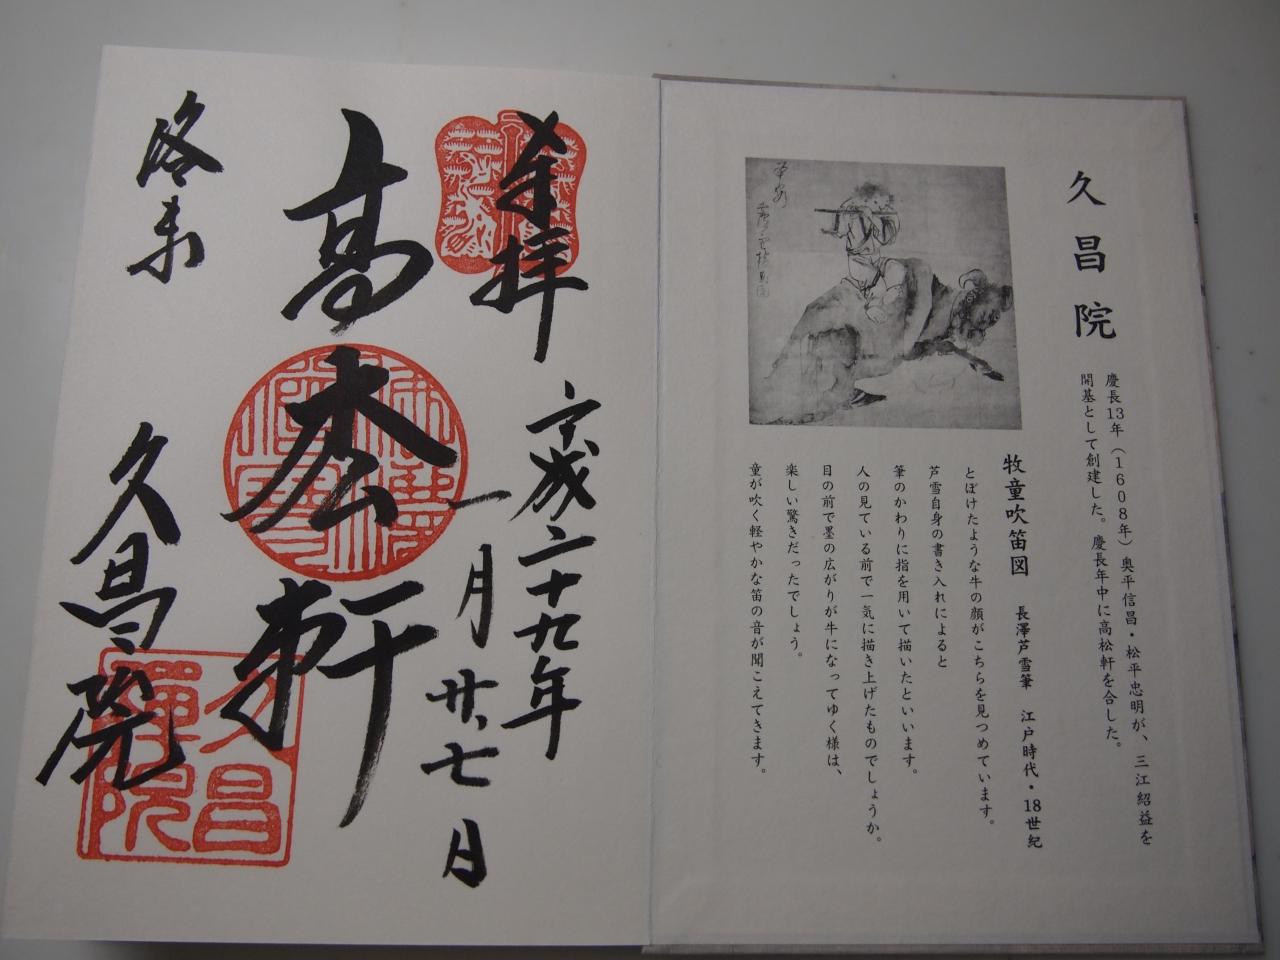 久昌院
慶長13年（1608年）奥平信昌・松平忠明が、三江紹益を
開基として創建した。慶長年中に高松軒を合した。
牧童吹笛図　長澤芦雪筆　江戸時代・18世紀
とぼけたような牛の顔がこちらを見つめています。
芦雪自身の書き入れによると
筆のかわりに指を用いて描いたといいます。
人の見ている前で一気に描き上げたものでしょうか。
目の前で墨の広がりが牛になってゆく様は、
楽しい驚きだったでしょう。
童が吹く軽やかな笛の音が聞こえてきます。
奉拝
平成二十九年
一月廿七日
高枩軒
洛東
久昌院
久昌禅院